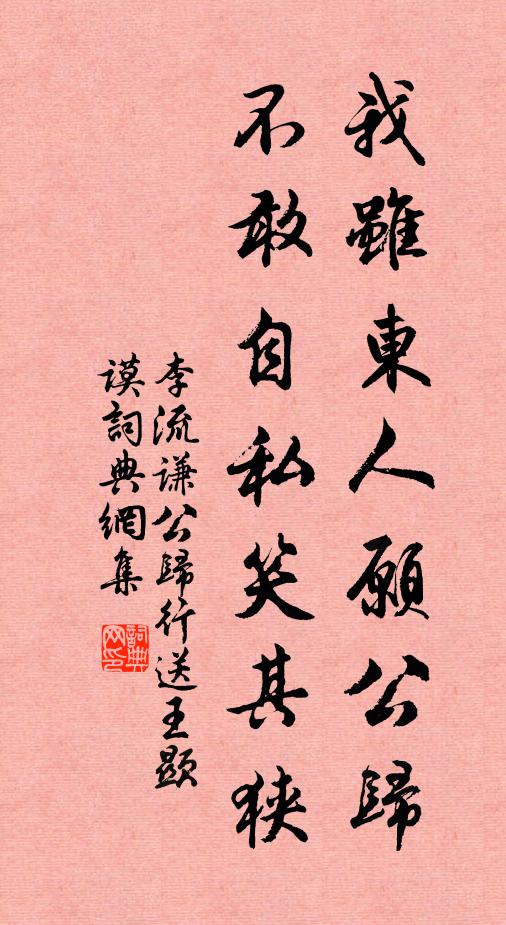 我雖東人願公歸
不敢自私笑其狹
李流謙公歸行送王顯
謨詞典網集
詞典网印